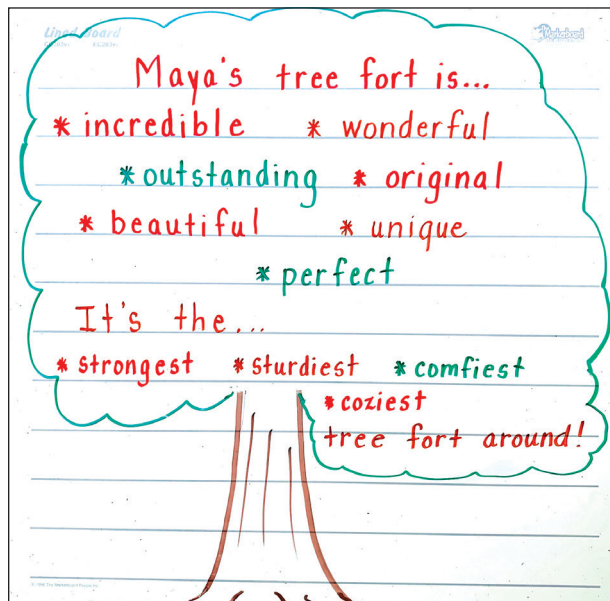 Lined Board
The Markerboard
Maya's tree fort is...
* incredible * wonderful
* outstanding * original
* beautiful * unique
* perfect
It's the...
* strongest * sturdiest * comfiest
* coziest
tree fort around!